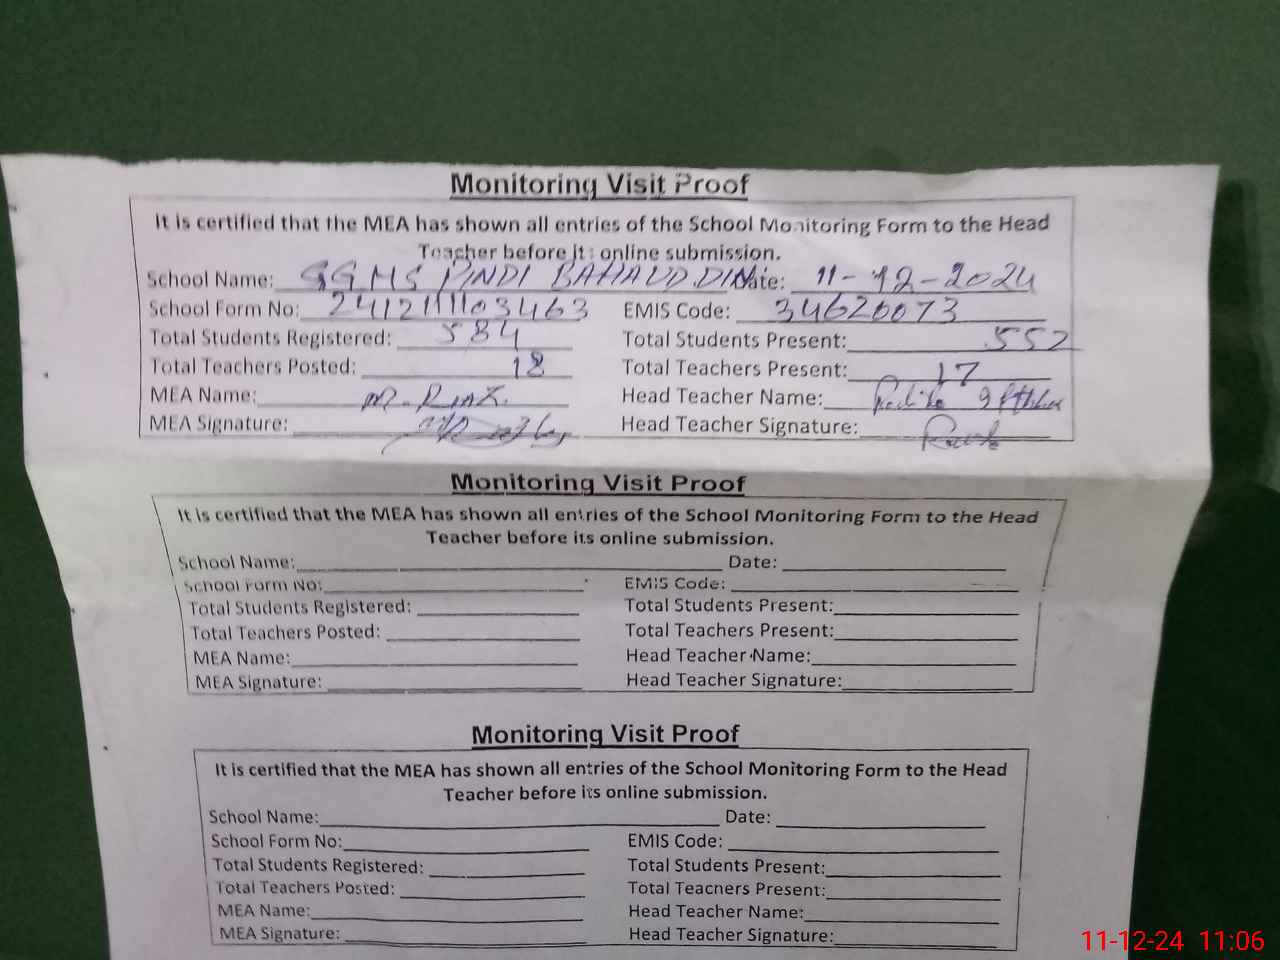 Monitoring Visit Proof
It is certified that the MEA has shown all entries of the School Monitoring Form to the Head
Teacher before its online submission.
School Name: GGHS PINDI BAHAUDDIN Date: 11-12-2024
School Form No: 24121111103463 EMIS Code: 34620073
Total Students Registered: 584 Total Students Present: 552
Total Teachers Posted: 18 Total Teachers Present: 17
MEA Name: M. Riaz. Head Teacher Name:
MEA Signature: Head Teacher Signature:
Monitoring Visit Proof
It is certified that the MEA has shown all entries of the School Monitoring Form to the Head
Teacher before its online submission.
School Name: Date:
School Form No: EMIS Code:
Total Students Registered: Total Students Present:
Total Teachers Posted: Total Teachers Present:
MEA Name: Head Teacher Name:
MEA Signature: Head Teacher Signature:
Monitoring Visit Proof
It is certified that the MEA has shown all entries of the School Monitoring Form to the Head
Teacher before its online submission.
School Name: Date:
School Form No: EMIS Code:
Total Students Registered: Total Students Present:
Total Teachers Posted: Total Teachers Present:
MEA Name: Head Teacher Name:
MEA Signature: Head Teacher Signature:
11-12-24 11:06